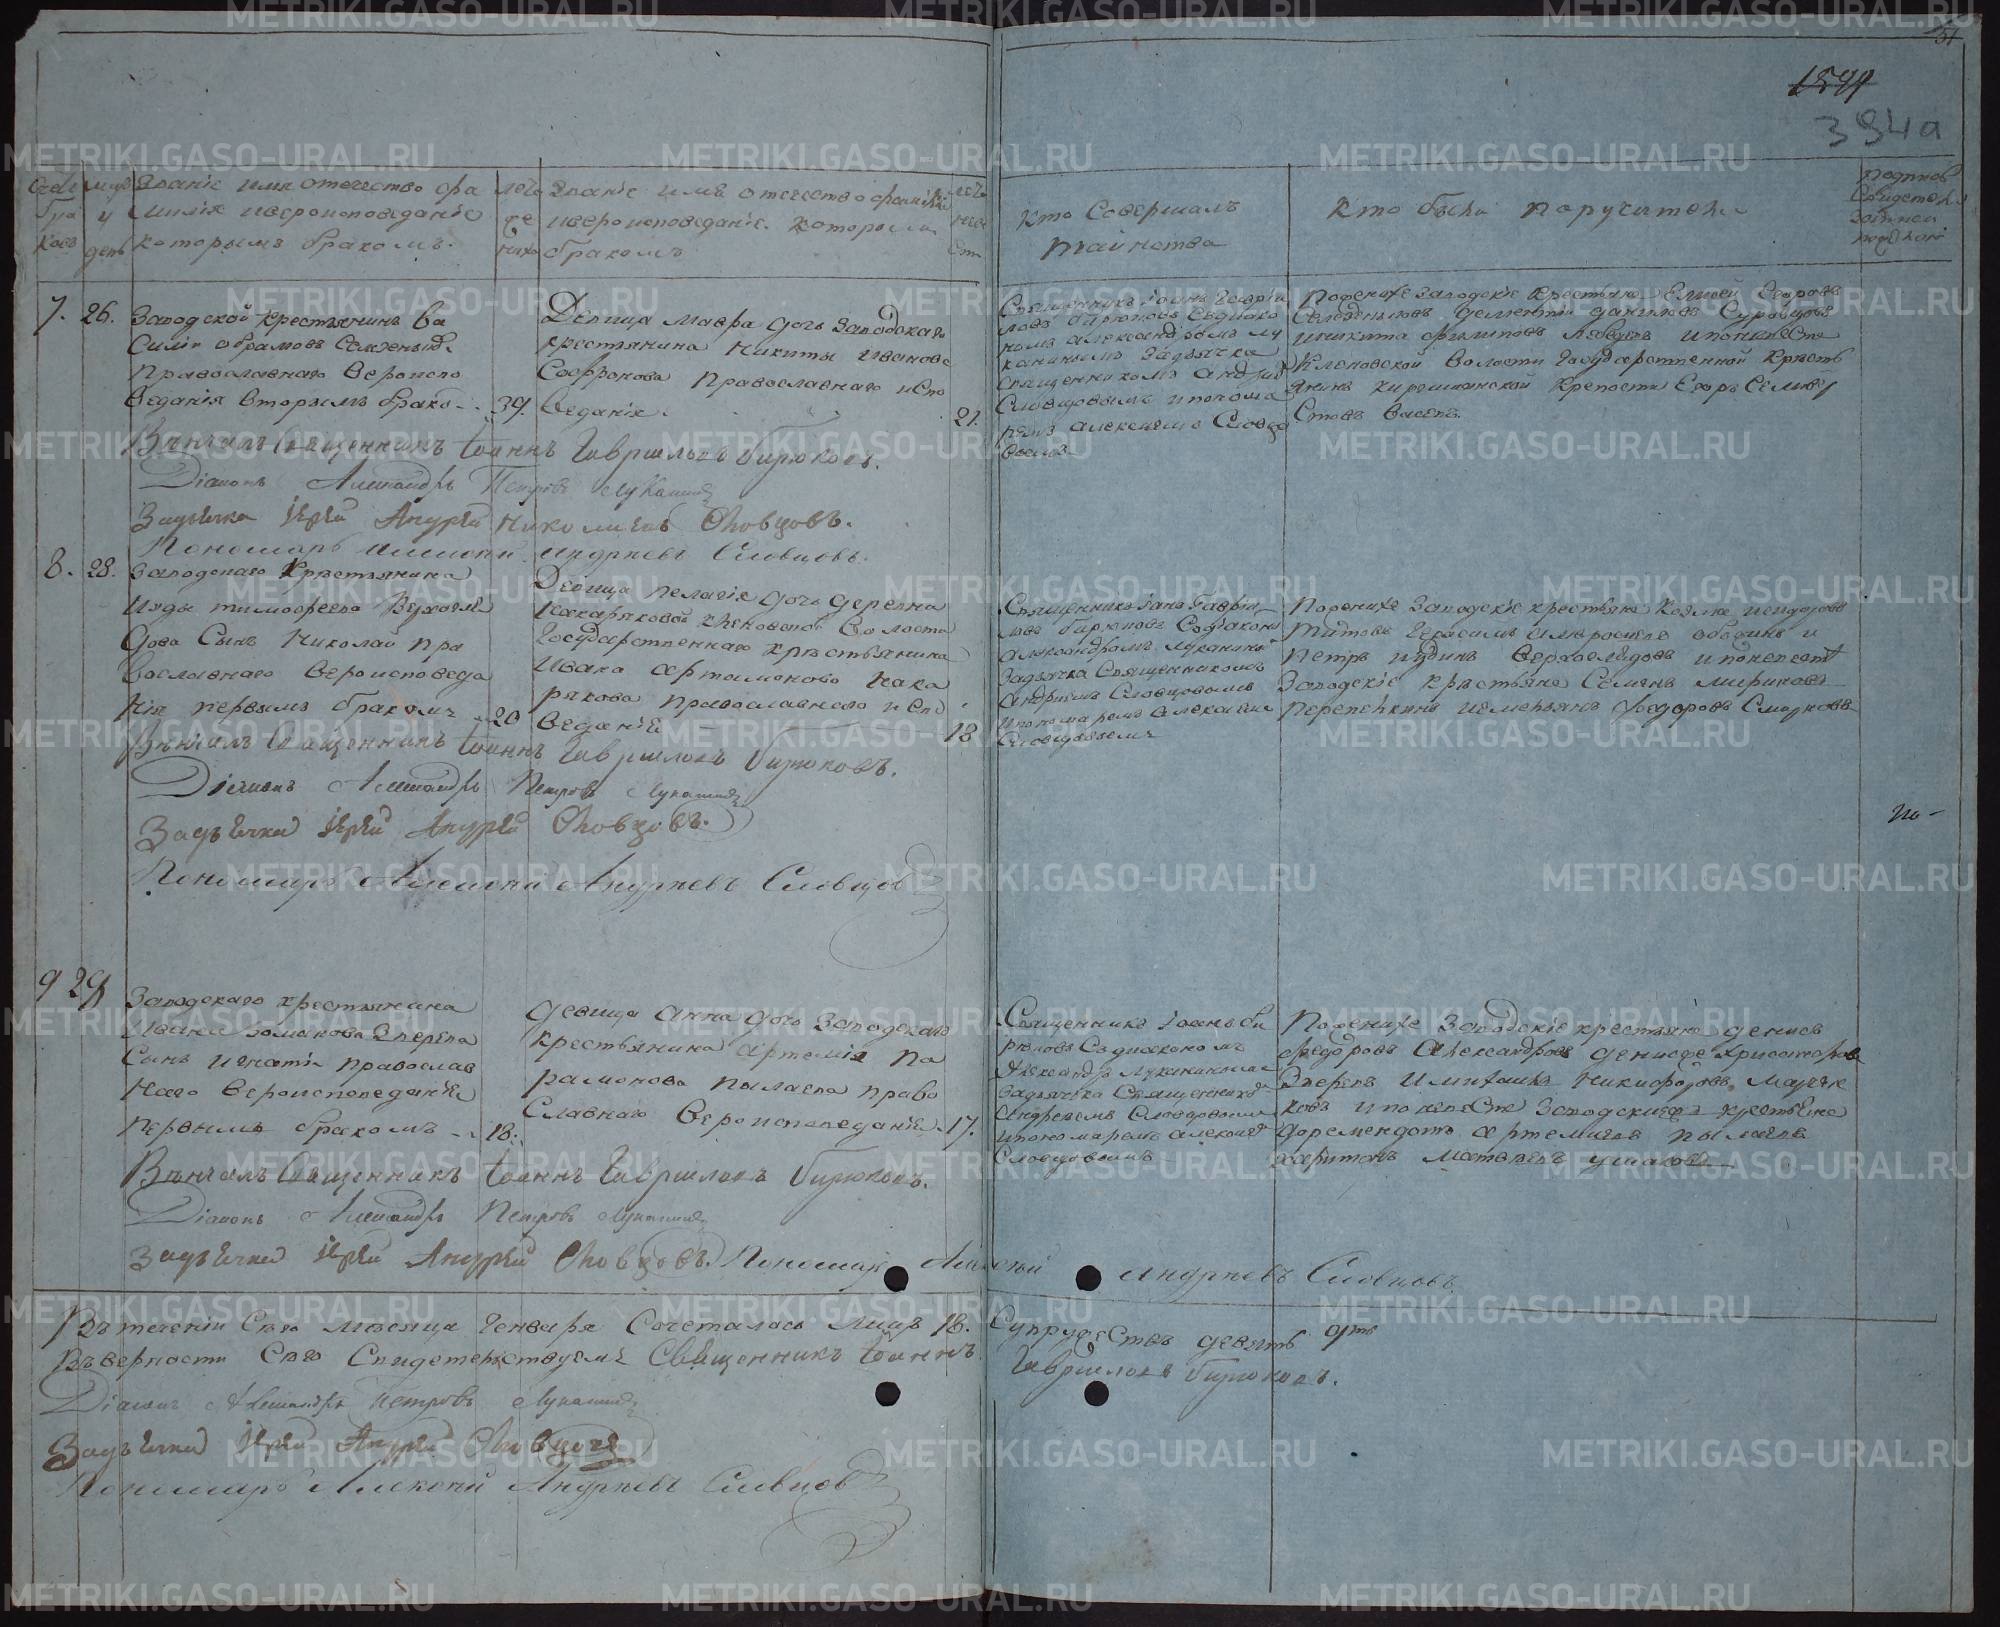 51
1591
394а
Счетъ браковъ
мцъ и день
Званіе имя отечество фа
милія ивероисповеданіе
которымъ бракомъ.
Званіе имя отечество фамилія
ивероисповеданіе. которымъ
бракомъ
кто Совершалъ
таинства
кто были поручители
7. 26.
Заводской крестьянинъ Ва
силій Абрамовъ
Православнаго Вероиспо
веданія вторымъ брако 39.
Девица Мавра дочь заводскаго
крестьянина Никиты Иванова
Софронова Православнаго испо
веданія. 21.
Священникъ Іоаннъ Гаврии
ловъ Бирюковъ Сдіако
номъ Александромъ Лу
канинымъ Задьячка
Священникомъ Андрѣемъ
Словцовымъ ипонома
ремъ Алексѣемъ Словцо
вымъ
Поженихе Заводскіе Крестьяне Елисей Егоровъ
Дементій Даниловъ
иникита Филиповъ Лебедевъ ипоневесте
Кленовской Волости Государственной Кресть
янинъ Киришанской Крепости Егоръ
Вѣнчалъ Священникъ Іоаннъ Гавриловъ Бирюковъ.
Діаконъ Александръ Петровъ Луканинъ
Задьячка Іерей Андрей Николаевъ Словцовъ.
Пономарь Алексѣй Андреевъ Словцовъ.
8. 28.
Заводскаго Крестьянина
Иуды Тимофеева Верхогля
дова Сынъ Николай Пра
вославнаго Вероисповеда
нія первымъ бракомъ 20
Девица Пелагія дочь деревни
Кахаряковой Кленовской Волости
Государственнаго крестьянина
Ивана Артамонова Кака
рякова Православнаго испо
веданія 18
Священникъ Іоанъ Гаври
ловъ Бирюковъ Содіакономъ
Александромъ Луканинымъ
Задьячка Священникомъ
Андреемъ Словцовымъ
ипономаремъ Алексѣемъ
Словцовымъ
Поженихе Заводскіе крестьяне Козма Исидоровъ
Титовъ Герасимъ Амвросіевъ Ободинъ и
Петръ Иудинъ Верхоглядовъ ипоневесте
Заводскіе Крестьяне Семенъ Мироновъ
Перепечкинъ иемельянъ Федоровъ
Вѣнчалъ Священникъ Іоаннъ Гавриловъ Бирюковъ.
Діаконъ Александръ Петровъ Луканинъ
Задьячка Іерей Андрей Словцовъ.
Пономарь Алексѣй Андреевъ Словцовъ
по-
9 29
Заводскаго крестьянина
Ивана Романова Зверева
Сынъ Игнатій Православ
наго Вероисповеданія
первымъ бракомъ 18.
девица Анна дочь Заводскаго
крестьянина Артемія Па
рамонова Пылаева право
славнаго Вероисповеданія 17.
Священникъ Іоанъ Би
рюковъ Сдиакономъ
Александромъ Луканинымъ
Задьячка Священникомъ
Андреемъ Словцовымъ
ипономаремъ Алексеемъ
Словцовымъ
Поженихе Заводскіе крестьяне Денисъ
Федоровъ Александровъ Денисъ Христофоровъ
Зверевъ Никифоровъ
ипоневесте Заводскіе крестьяне
Дормендотъ Артемиевъ Пылаевъ
Харитонъ Матвеевъ Ушаковъ
Вѣнчалъ Священникъ Іоаннъ Гавриловъ Бирюковъ.
Діаконъ Александръ Петровъ Луканинъ
Задьячка Іерей Андрей Словцовъ. Пономарь Алексѣй Андреевъ Словцовъ.
Въ теченіи Сего мѣсяца Генваря Сочеталось лицъ 18. Супружествъ девять
Въ верности Сего Свидетельствуемъ Священникъ Іоаннъ Гавриловъ Бирюковъ.
Діаконъ Александръ Петровъ Луканинъ
Задьячка Іерей Андрей Словцовъ
Пономарь Алексѣй Андреевъ Словцовъ
METRIKI.GASO-URAL.RU